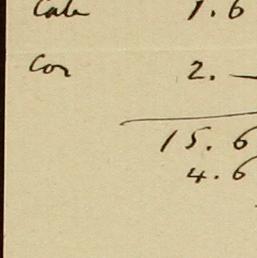 Cab 1.6
Cor 2. —
15.6
4.6